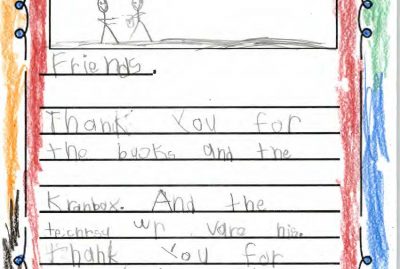 Friends.
Thank You for
the books and the
Krainbox. And the
wr vare nis.
Thank You for